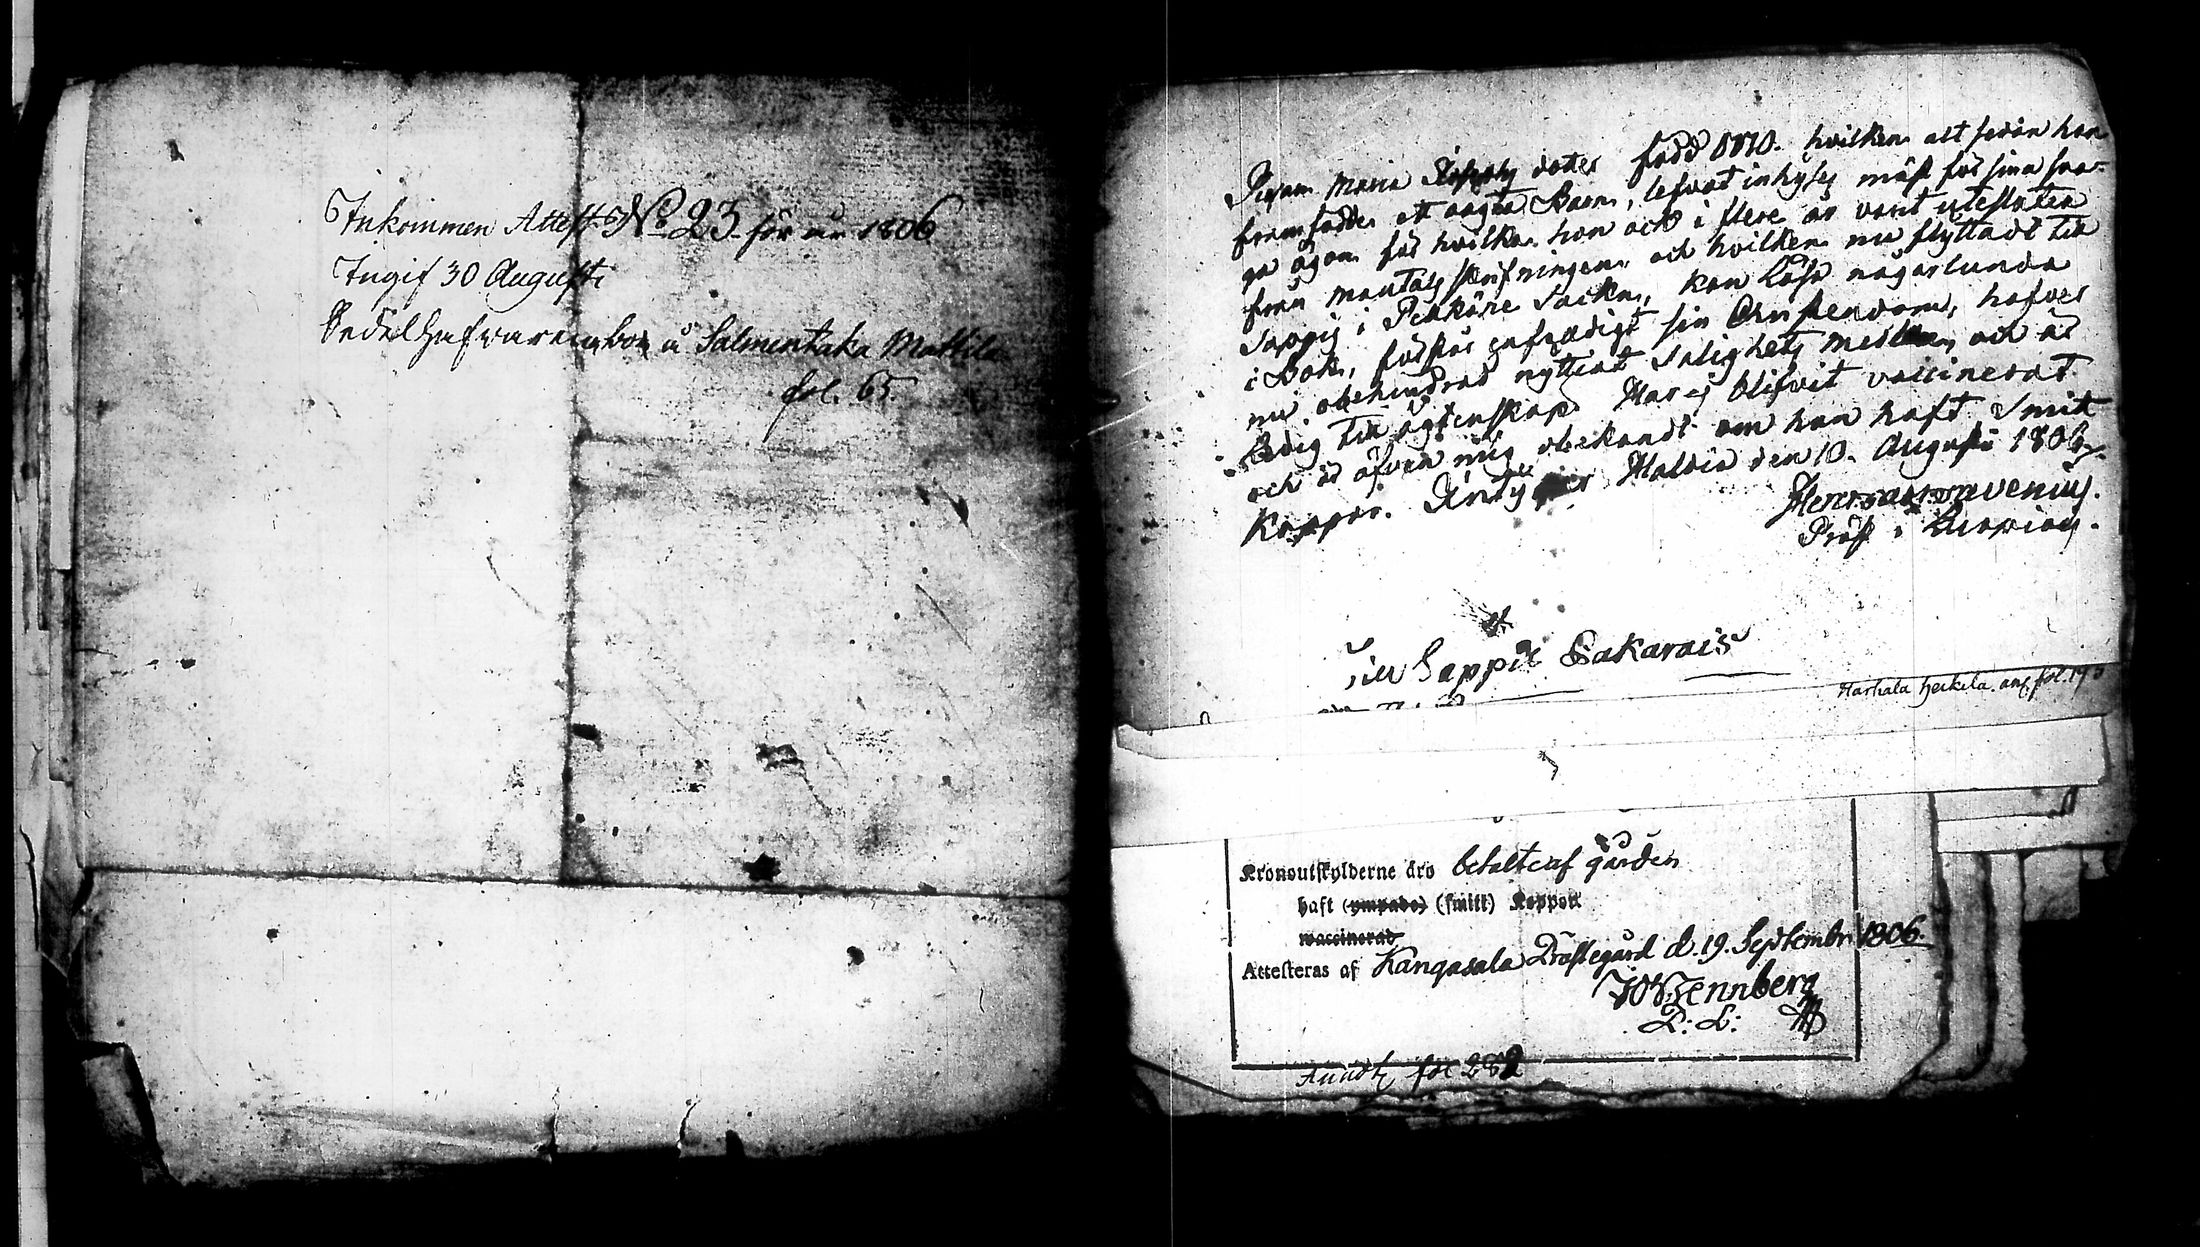 Inkommen Attest No 23 för år 1806
Ingif 30 Augusti
Sedelhafvaren bor å Salmentaka Mattila
fol. 65.
Pigan Maria doter född hvilken alt sedan hon
framfödde ett oägta Barn, lefvat inhyses mäst för sina sva-
ga ögon för hvilka hon ock i flere år varit utesluten
från mantals skrifningen och hvilken nu flyttadt till
Sappis i Pelkäne Sockn, kan läsa någorlunda
i Bok, förstår enfaldigt sin Christendom, hafver
nu obehindrad nyttjat Salighets medlen och är
ledig till ägtenskap. Har ej blifvit vaccinerat
och är äfven mig obekandt om hon haft Smitt
Koppor. Intygar den 10. Augusti 1806.
Prost
Till Sappis Sakarais
Harhala Heikila. ang. fol.
Kronoutskylderne äro betalte af gården
haft (ympade) (smitt) Koppor
vaccinerad
Attesteras af Kangasala Prästegård d. 19. Septembr 1806.
Wennberg
fol 282